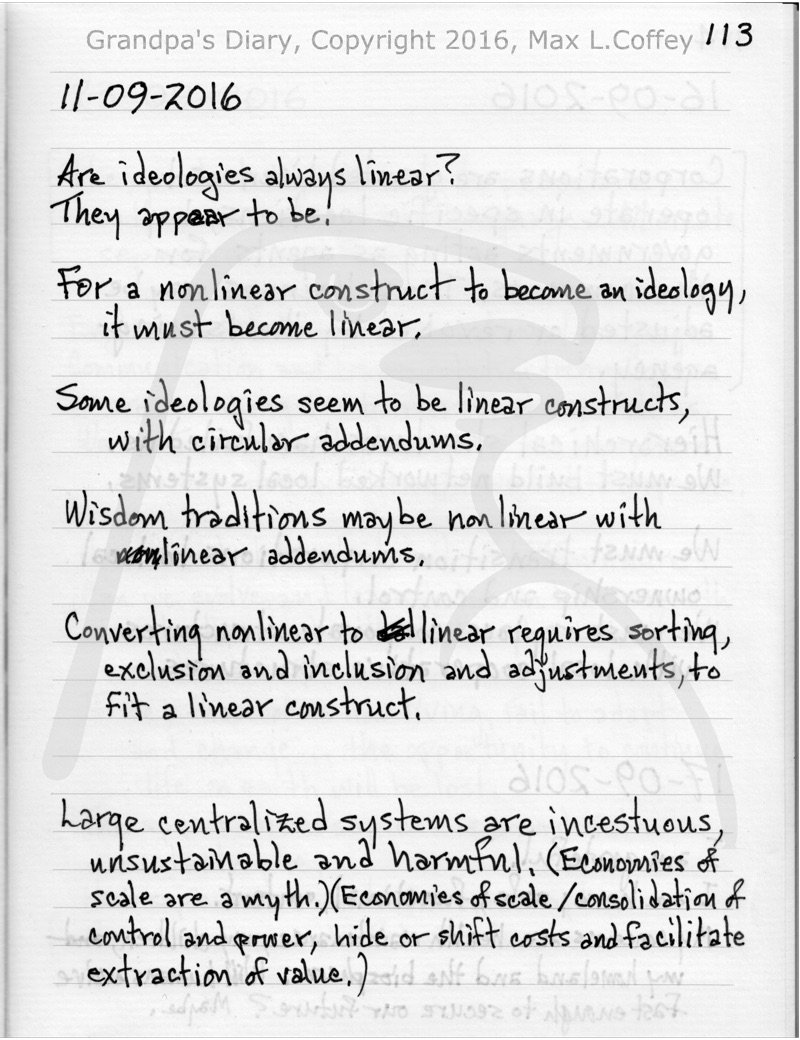 Grandpa's Diary, Copyright 2016, Max L.Coffey 113
11-09-2016
Are ideologies always linear?
They appear to be.
For a nonlinear construct to become an ideology,
it must become linear.
Some ideologies seem to be linear constructs,
with circular addendums.
Wisdom traditions maybe nonlinear with
linear addendums.
Converting nonlinear to linear requires sorting,
exclusion and inclusion and adjustments, to
fit a linear construct.
Large centralized systems are incestuous,
unsustainable and harmful. (Economies of
scale are a myth.)(Economies of scale/consolidation of
control and power, hide or shift costs and facilitate
extraction of value.)